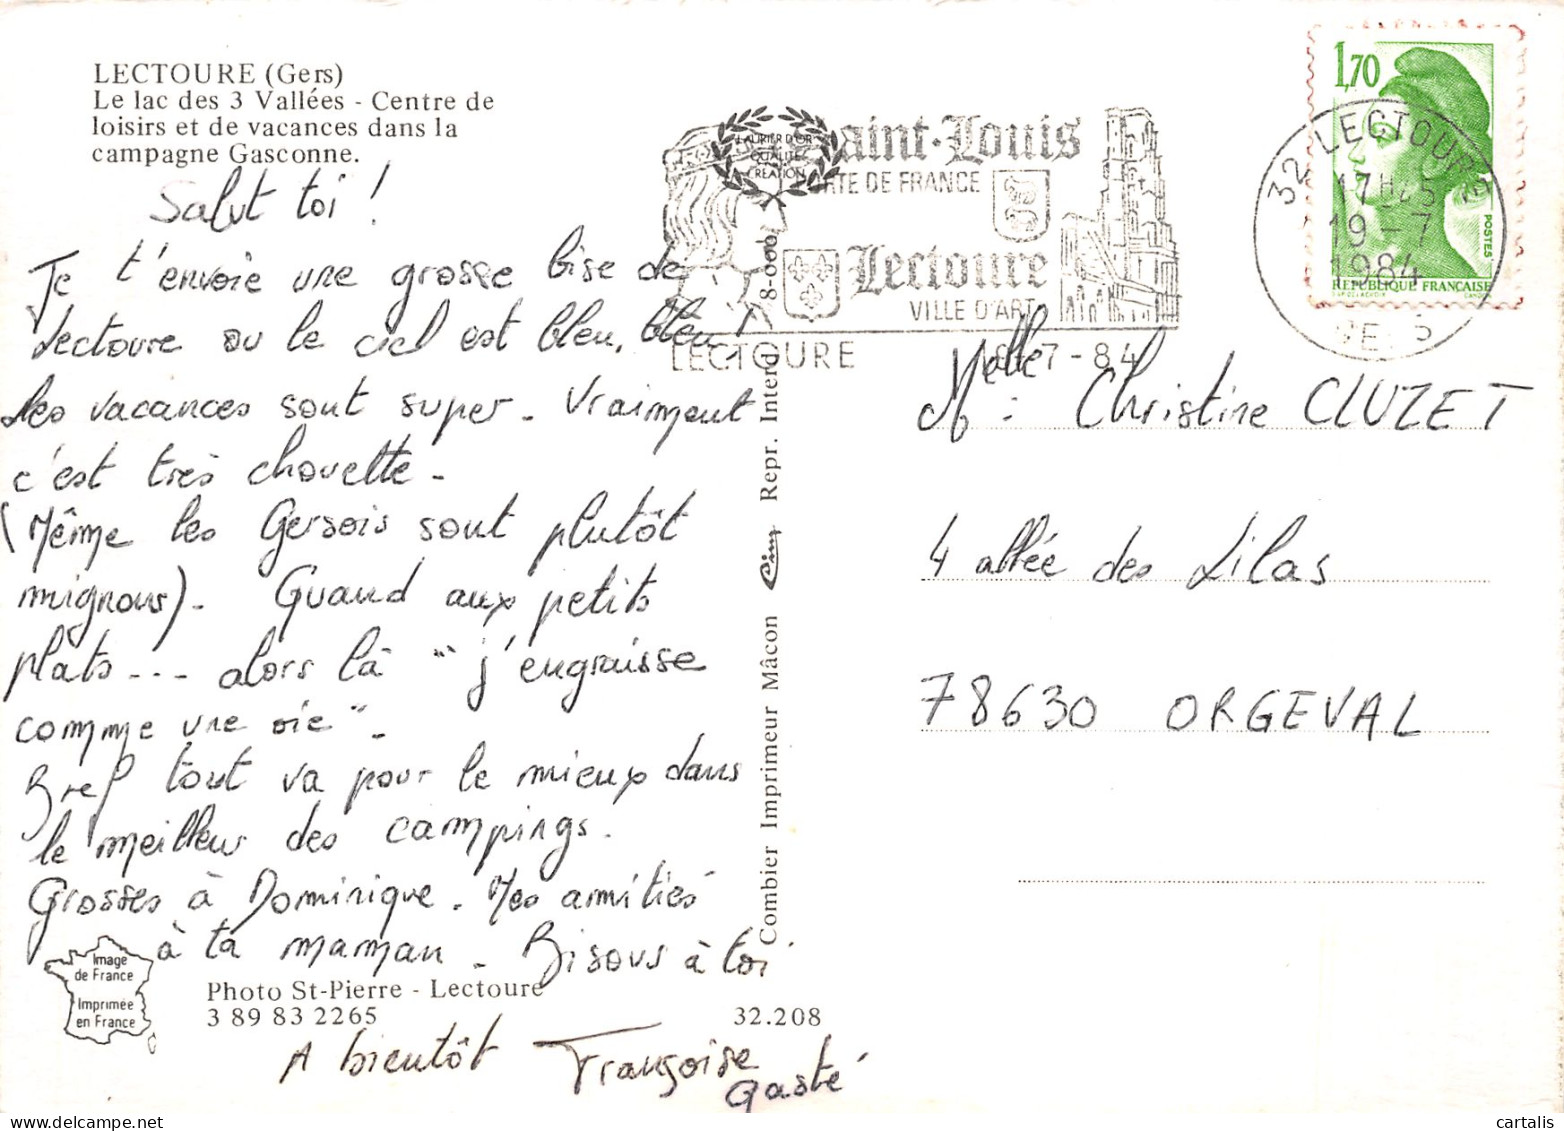 LECTOURE (Gers)
Le lac des 3 Vallées - Centre de
loisirs et de vacances dans la
campagne Gasconne.
Salut toi !
Je t'envoie une grosse bise de
Lectoure ou le ciel est bleu, bleu !
Les vacances sont super. Vraiment
c'est très chouette.
(Même les Gersois sont plutôt
mignons). Quand aux petits
plats... alors là "j'engraisse
comme une oie".
Bref tout va pour le mieux dans
le meilleur des campings.
Grosses à Dominique. Mes amitiés
à ta maman. Bisous à toi
A bientôt Françoise
Gasté
Image
de France
Imprimée
en France
Photo St-Pierre - Lectoure
3 89 83 2265
32.208
Combier Imprimeur Mâcon Cim Repr. Interd. 8-000
LAURIER D'OR
QUALITÉ
CRÉATION
Saint-Louis
PORTE DE FRANCE
Lectoure
VILLE D'ART
LECTOURE
7-84
1,70
POSTES
REPUBLIQUE FRANÇAISE
32 LECTOURE
17H45
19-7
1984
GERS
Melle
M : Christine CLUZET
4 allée des Lilas
78630 ORGEVAL
cartalis